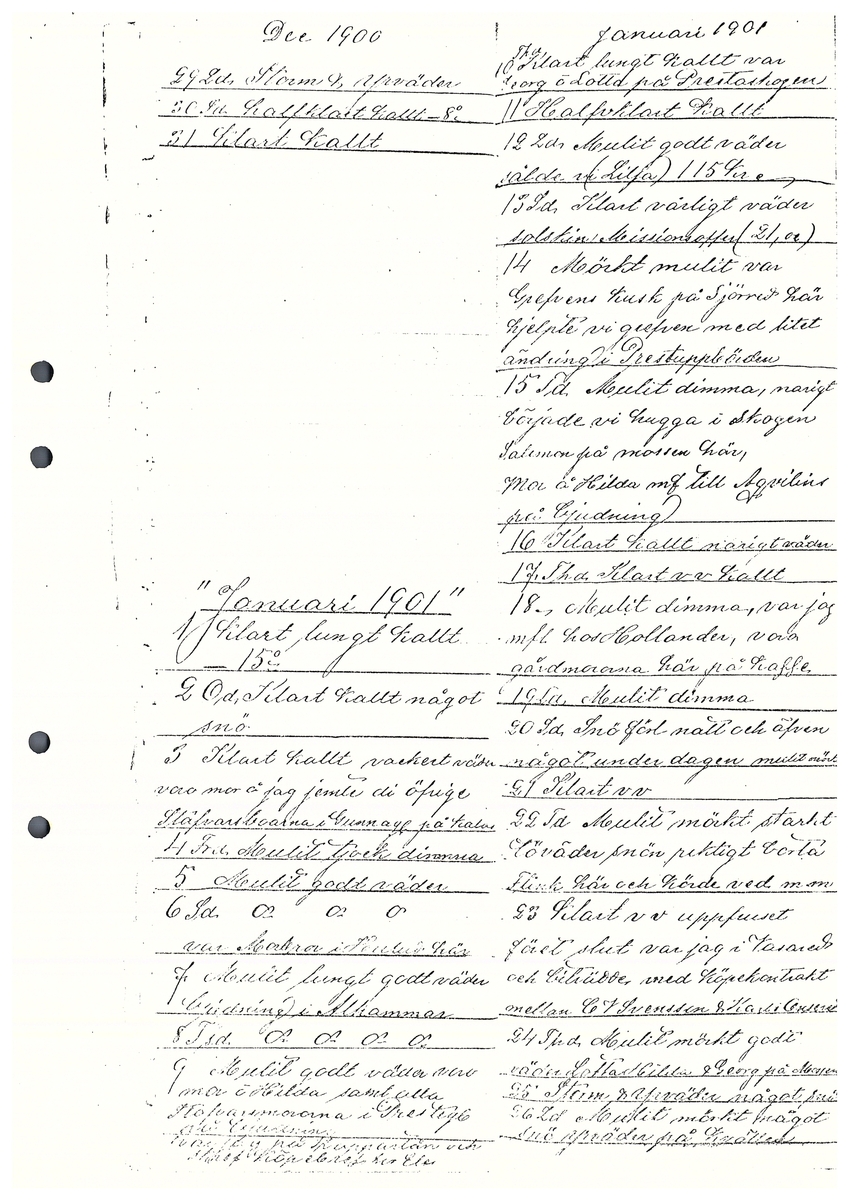 Dec 1900
29 Ld. Storm & Yrväder
30 Sd. halfklart kallt -8°
31 Klart kallt
"Januari 1901"
1) Klart lungt kallt
- 15°
2 Od. Klart kallt något
snö.
3 Klart kallt vackert väder
voro mor å jag jemte di öfrige
i Gunnagg på kalas
4 Frd. Mulit tjock dimma
5 Mulit godt väder
6 Sd. do do do
var Morbror i här
7 Mulit lungt godt väder
bjudning i Alhammar
8 Tsd. do do do do
9 Mulit godt väder voro
mor å Hilda samt alla
i
på bjudning
var jag på och
skref Köpebref
Januari 1901
10 Thd Klart lungt kallt var
Georg å Lotta på Prestaskogen
11 Halfoklart kallt
12 Ld. Mulit godt väder
sålde vi (Lilja) 115 kr.
13 Sd. Klart vårligt väder
solskin. Missionsoffer (21, ör)
14 Mörkt mulit var
Grefvens kusk på Sjöred här
hjelpte vi grefven med litet
ändring i Prestuppbörden
15 Td. Mulit dimma, narigt
började vi hugga i skogen
Salomon på mossen här,
Mor å Hilda mfl till Agvilins
på bjudning
16 Klart kallt narigt väder
17. Thd. Klart v v kallt
18., Mulit dimma, var jag
mfl hos Hollander, vora
gårdmororna här på kaffe
19 Ld. Mulit dimma
20 Sd. Snö förl natt och äfven
något under dagen mulit mörkt
21 Klart v v
22 Td Mulit mörkt starkt
Töväder snön riktigt borta
Flink här och körde ved m m
23 Klart v v uppfruset
föret slut var jag i Vasared
och biträdde med köpekontrakt
mellan C V Svensson &
24 Thd. Mulit mörkt godt
väder Lotta Hilda & Georg på Mossen
25 Storm & Yrväder något snö
26 Ld Mulit mörkt något
snö yrväder på